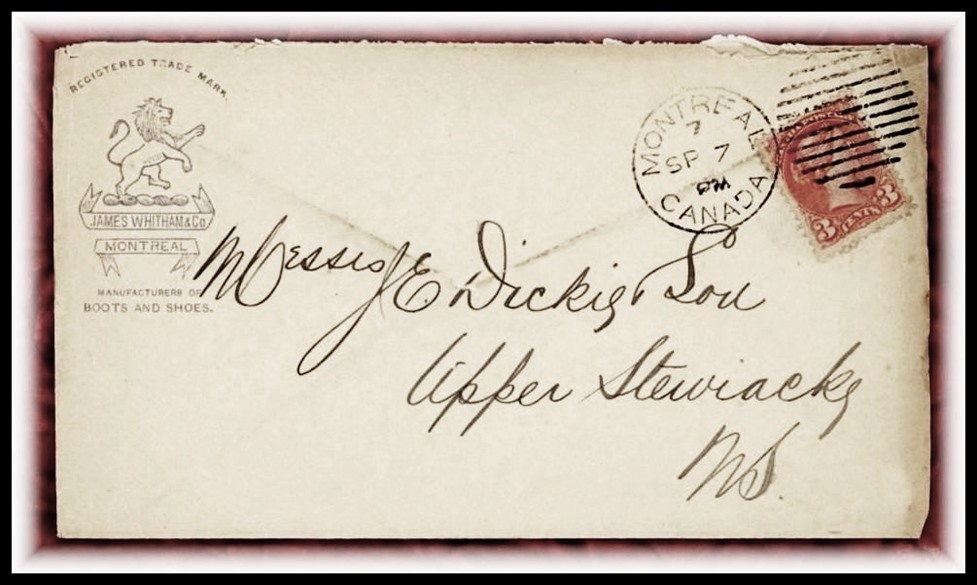 REGISTERED TRADE MARK.
JAMES WHITHAM & Co.
MONTREAL
MANUFACTURERS OF
BOOTS AND SHOES.
MONTREAL
7
SP 7
CANADA
CANADA POSTAGE
3 CENTS 3
Messrs J E Dickie & Son
Upper Stewiacke
N.S.